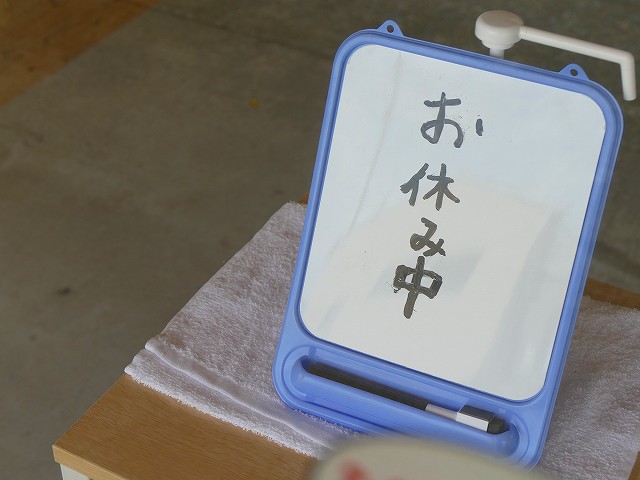 お休み中